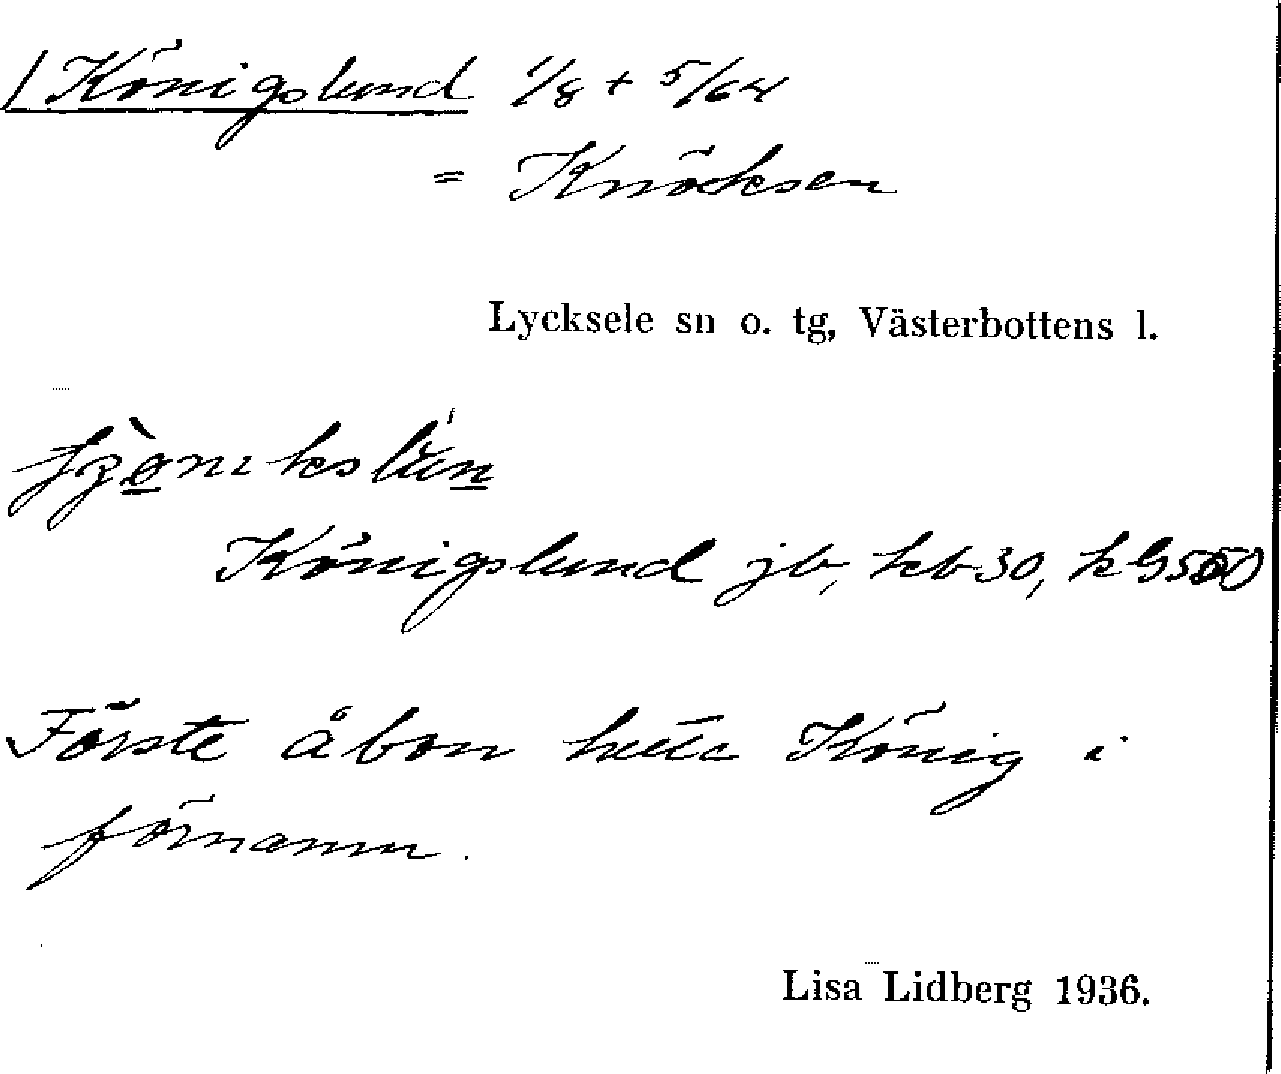 / Königslund 1/8 + 5/64
= Knöcksen
Lycksele sn o. tg, Västerbottens l.
Königslund jb, kb 30,
Förste åbon hette König i
förnamn.
Lisa Lidberg 1936.